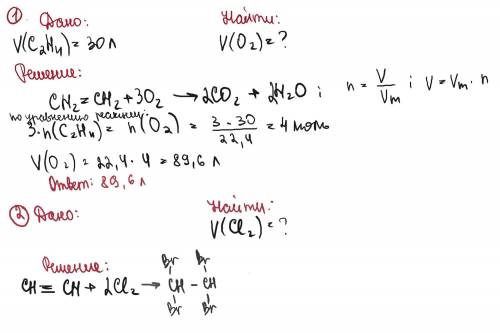 ① Дано: Найти:
V(C₂H₄)=30л V(O₂)=?
Решение:
CH₂=CH₂+3O₂ → 2CO₂ + 2H₂O ; n = V/Vm ; V=Vm·n
по уравнению реакции:
3·n(C₂H₄) = n(O₂) = 3·30/22,4 = 4 моль
V(O₂) = 22,4·4 = 89,6 л
Ответ: 89,6 л
② Дано: Найти:
V(Cl₂)=?
Решение:
Br Br
CH≡CH+2Cl₂→CH-CH
Br Br